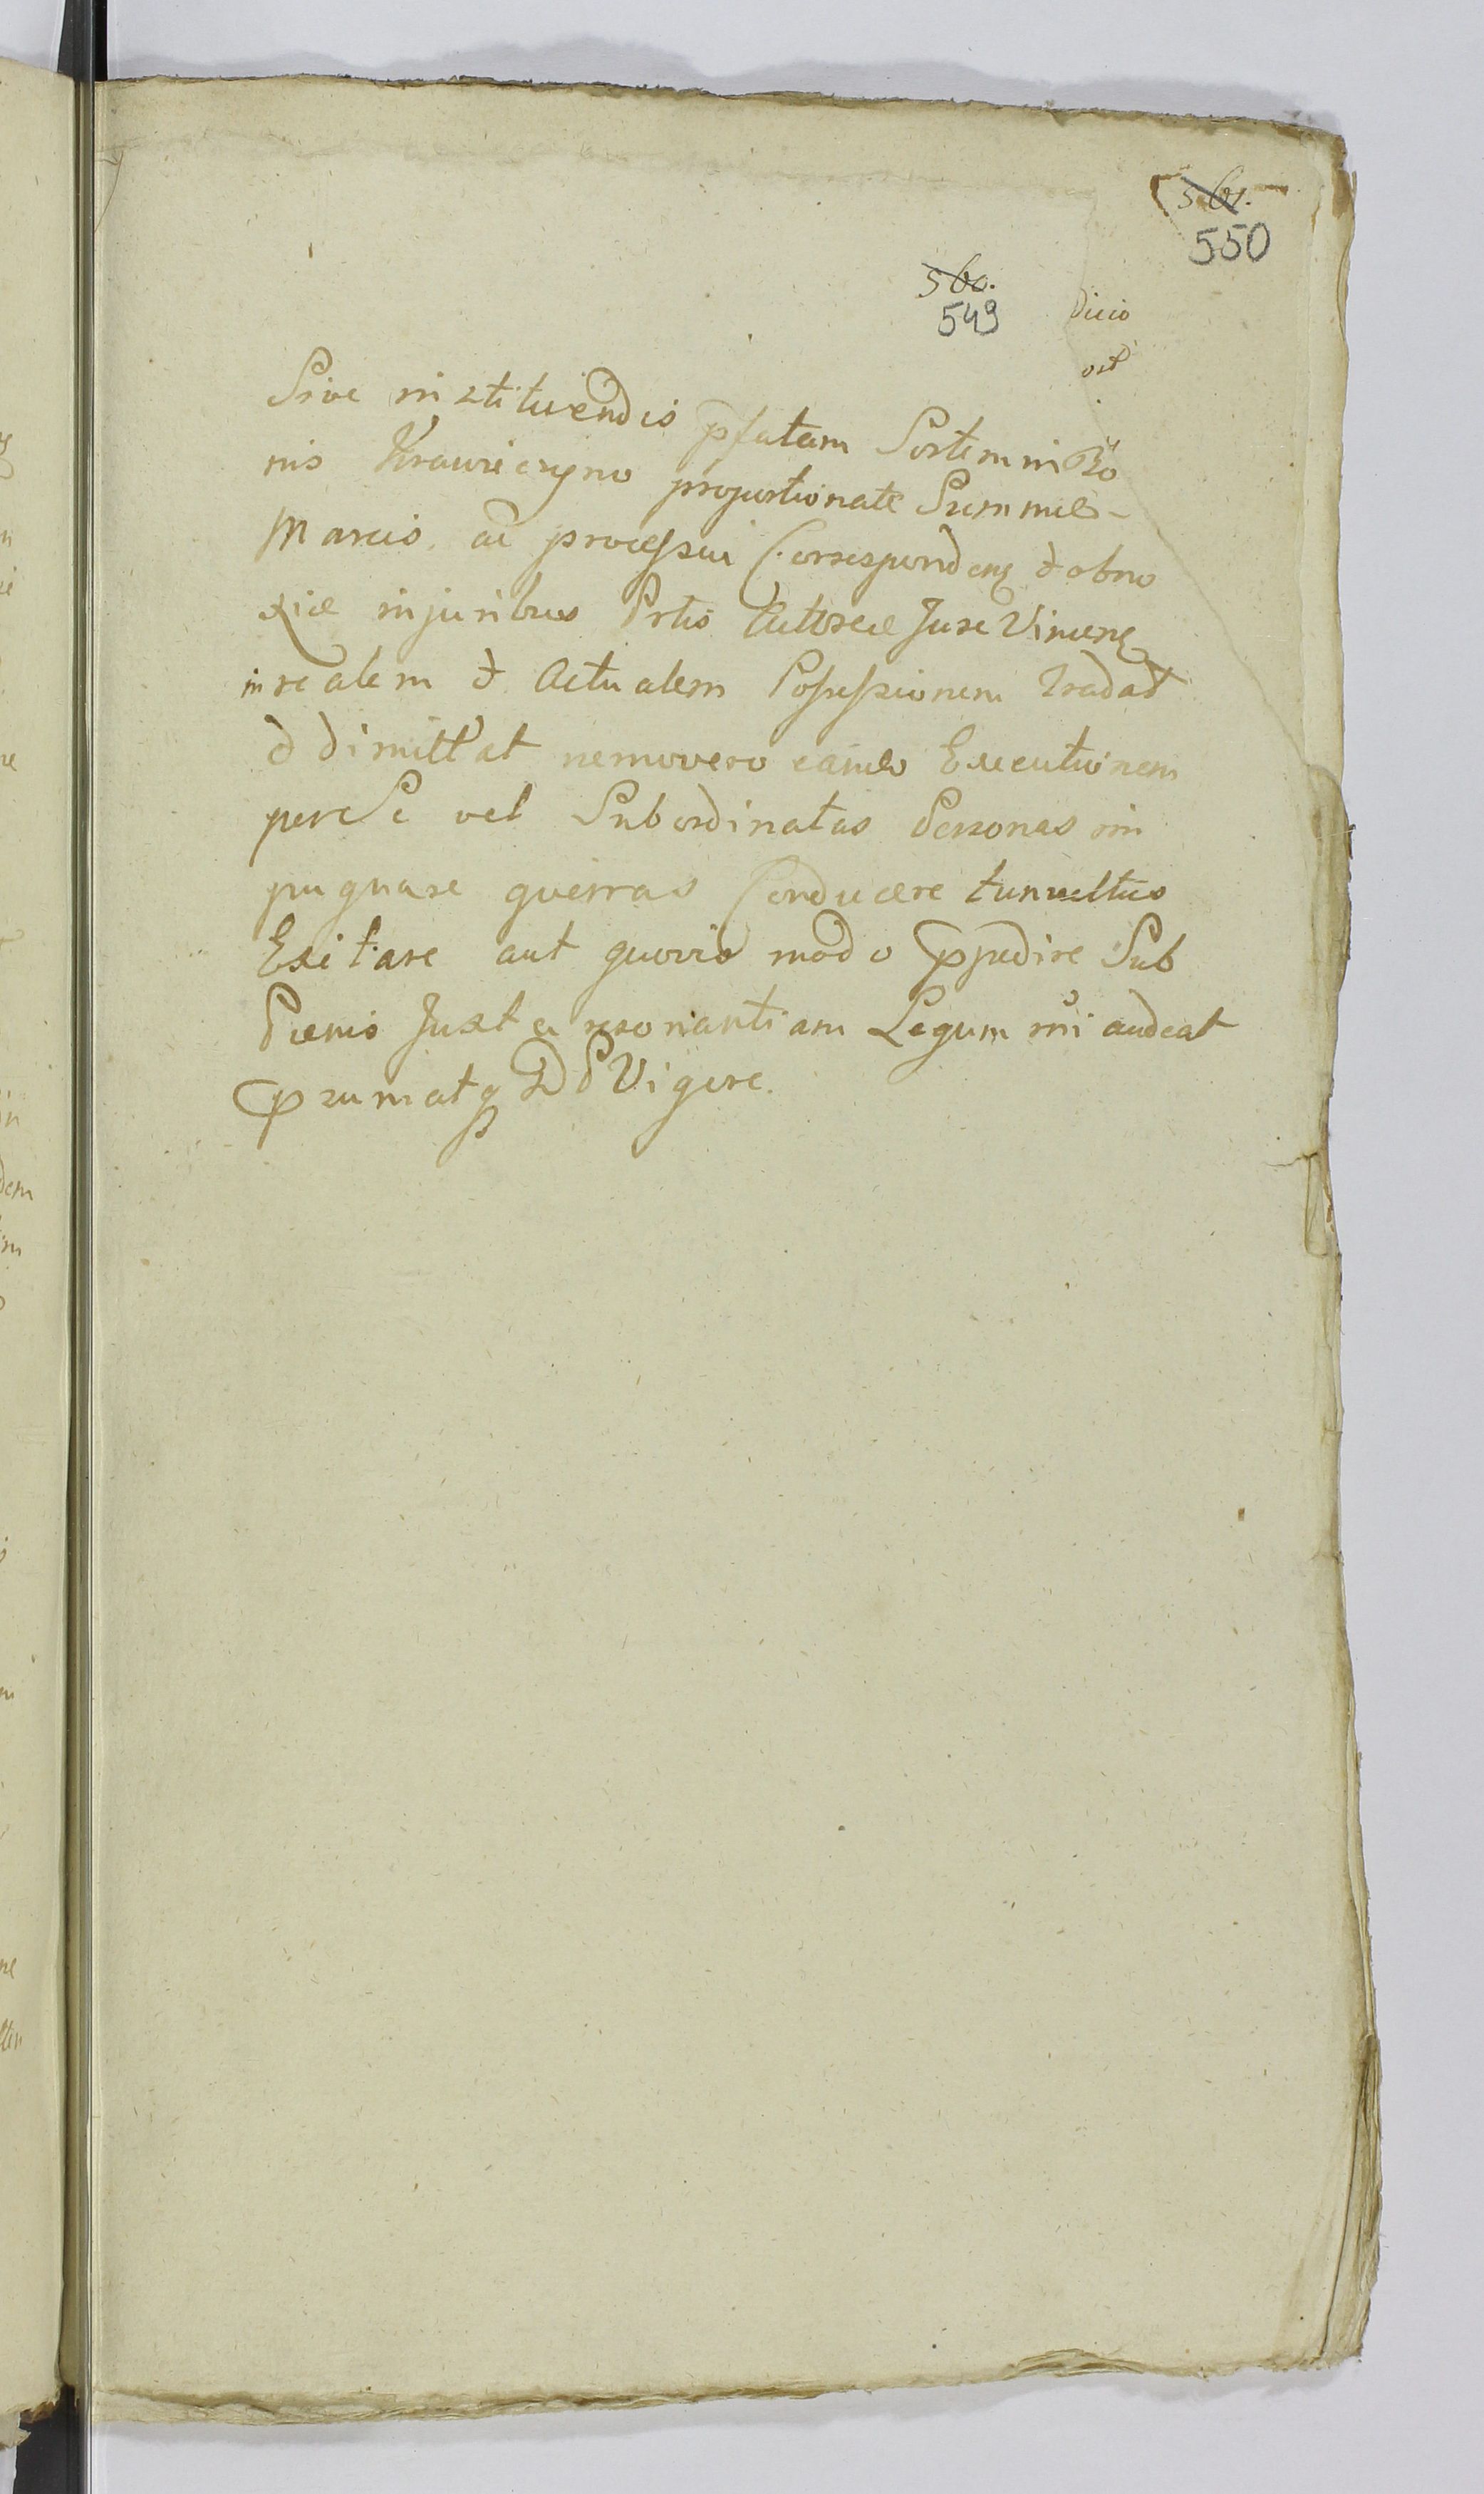 561.
550
560.
549
dicio
ost
Sive instituendis pfatam Sortem in Bo
nis Krawieczyno proportionate Summis
Marcis ac processui Correspondens & obno
xiae in juribus Prtis Actoreae Jure Vincens
in realem & Actualem Possessionem tradat
& dimittat nemo vero eamdo Executionem
per Se vel Subordinatas Personas im
pugnare guerras Conducere tumultus
Exitare aut quovis modo Impedire Sub
Paenis Juxta resonantiam Legum mi audeat
psumatq DD Vigore.